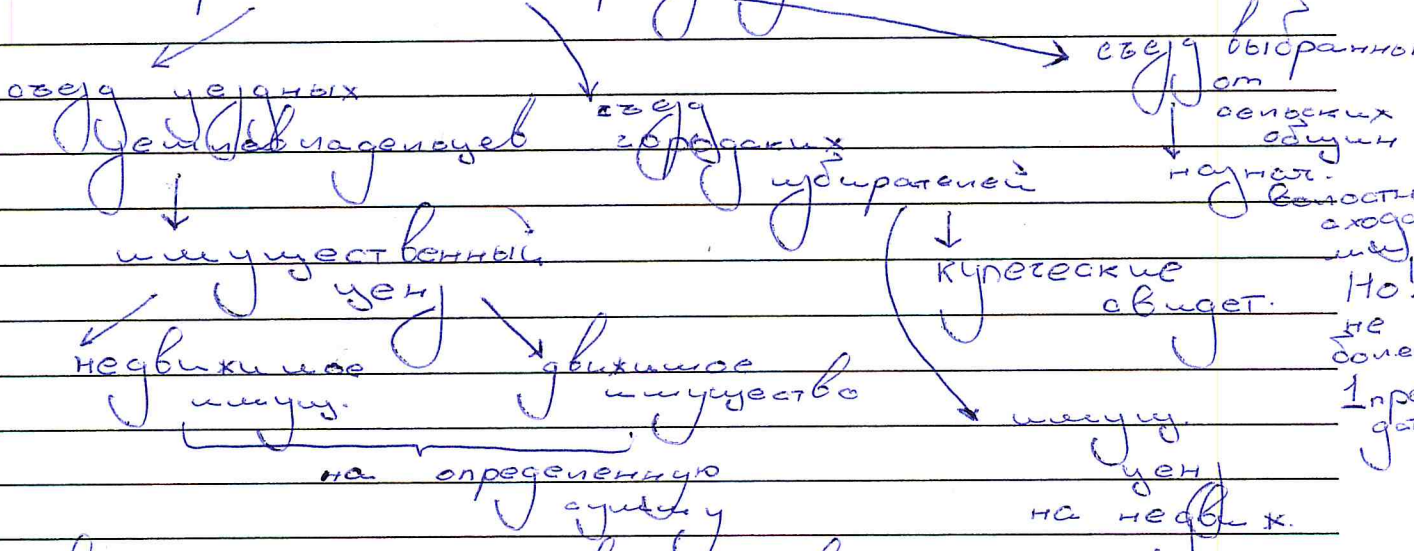 съезд уездных
землевладельцев
имущественный
ценз
недвижимое
имущ.
движимое
имущество
на определенную
сумму
съезд
городских
избирателей
купеческие
свидет.
имущ.
ценз
на недвиж.
съезд
от
сельских
общин
назнач.
Но
не